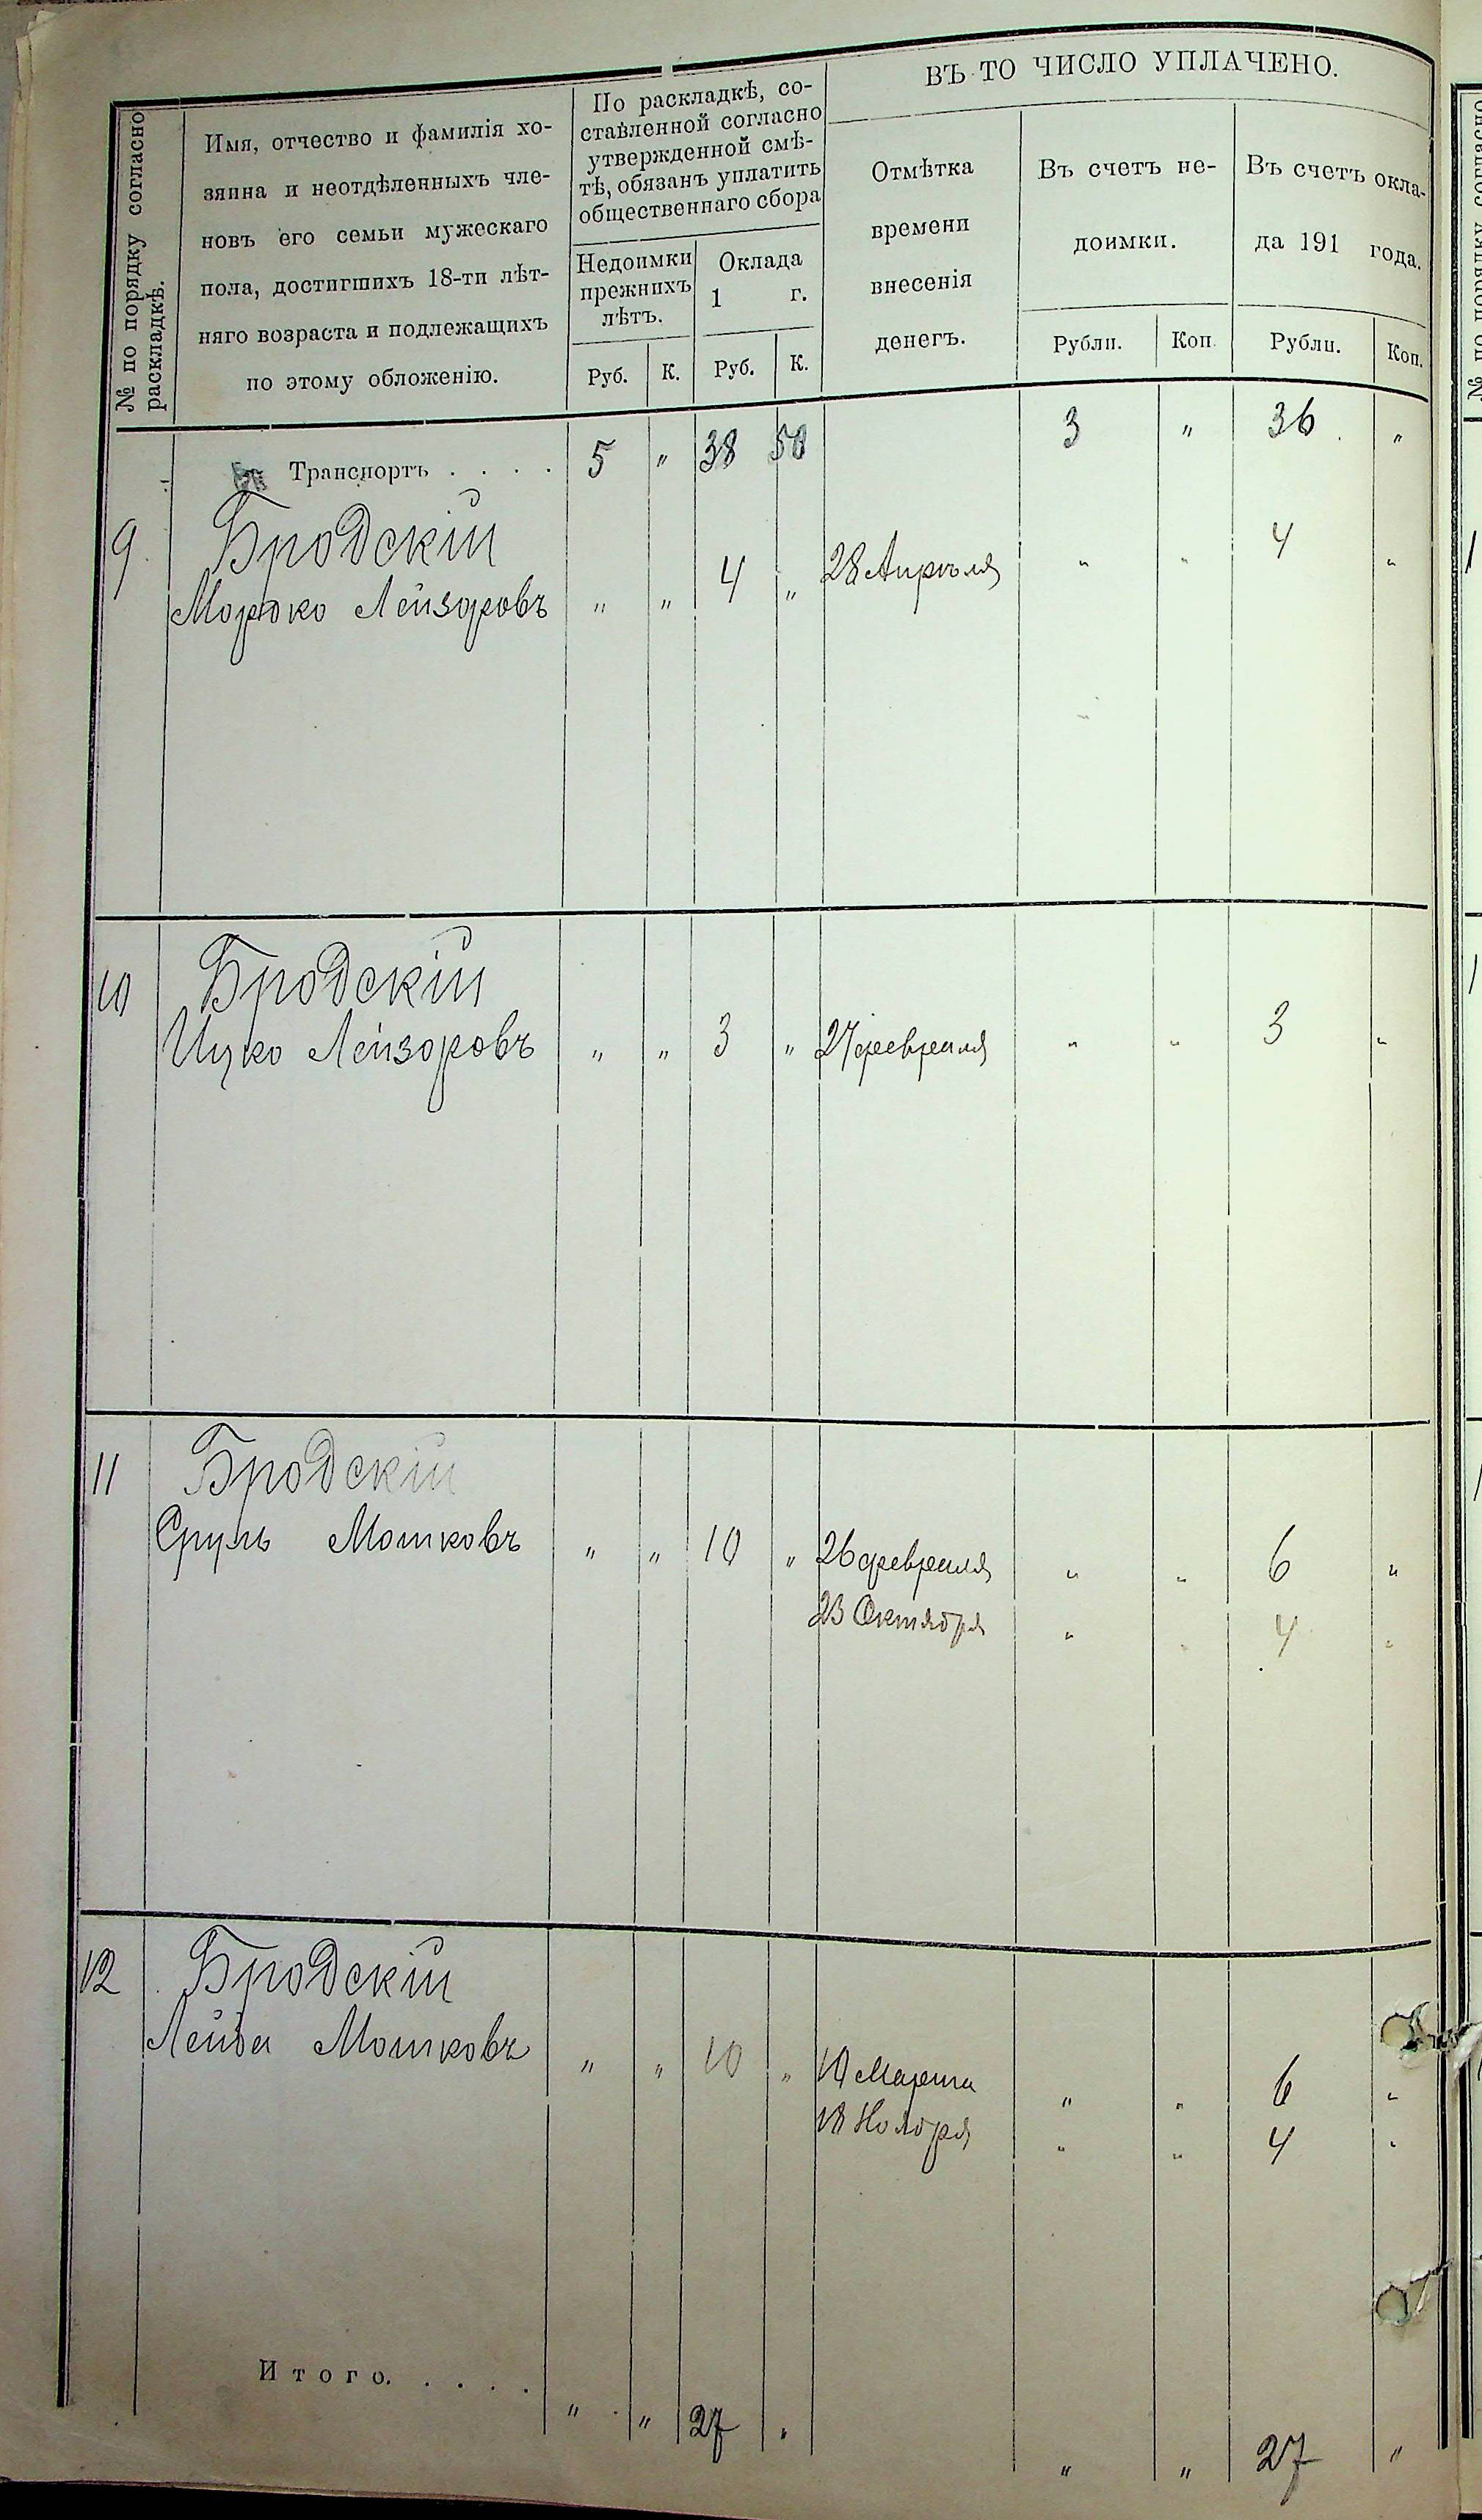 № по порядку согласно
раскладкѣ.
Имя, отчество и фамилія хо-
зяина и неотдѣленныхъ чле-
новъ его семьи мужескаго
пола, достигшихъ 18-ти лѣт-
няго возраста и подлежащихъ
по этому обложенію.
По раскладкѣ, со-
ставленной согласно
утвержденной смѣ-
тѣ, обязанъ уплатить
общественнаго сбора
Недоимки
прежнихъ
лѣтъ.
Руб. К.
Оклада
1 г.
Руб. К.
ВЪ ТО ЧИСЛО УПЛАЧЕНО.
Отмѣтка
времени
внесенія
денегъ.
Въ счетъ не-
доимки.
Рубли. Коп.
Въ счетъ окла-
да 191 года.
Рубли. Коп.
Транспортъ . . . . 5 " 38 50 3 " 36 "
9 Бродскій
Мордко Лейзоровъ " " 4 " 28 Апрѣля " " 4 "
10 Бродскій
Ицко Лейзоровъ " " 3 " 27 февраля " " 3 "
11 Бродскій
Сруль Мошковъ " " 10 " 26 февраля " " 6 "
23 Октября " " 4 "
12 Бродскій
Лейба Мошковъ " " 10 " 10 Марта " " 6 "
18 Ноября " " 4 "
Итого. . . . . " " 27 " " " 27 "